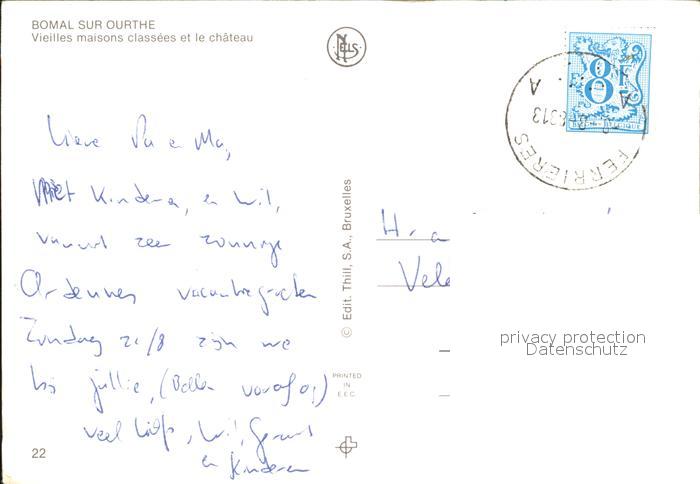 BOMAL SUR OURTHE
Vieilles maisons classées et le château
NELS
8F
BELGIQUE
FERRIERES
A A
Lieve Pa en Ma,
Met Kinderen, en Wil,
vanuit zeer zonnige
Ardennen vacantiegroeten
Zondag 21/8 zijn we
bij jullie, (Bellen vooraf op)
veel liefs, Wil, Gerard
en Kinderen
22
© Edit. Thill, S.A., Bruxelles
PRINTED
IN
E.E.C.
privacy protection
Datenschutz